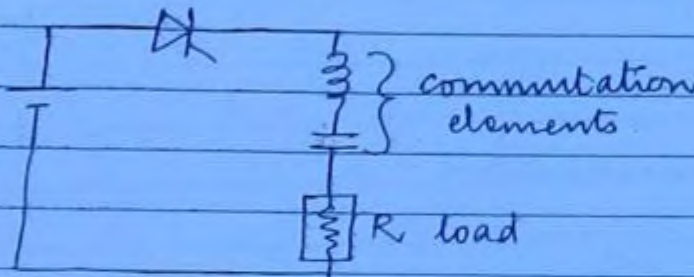 commutation
elements
R load